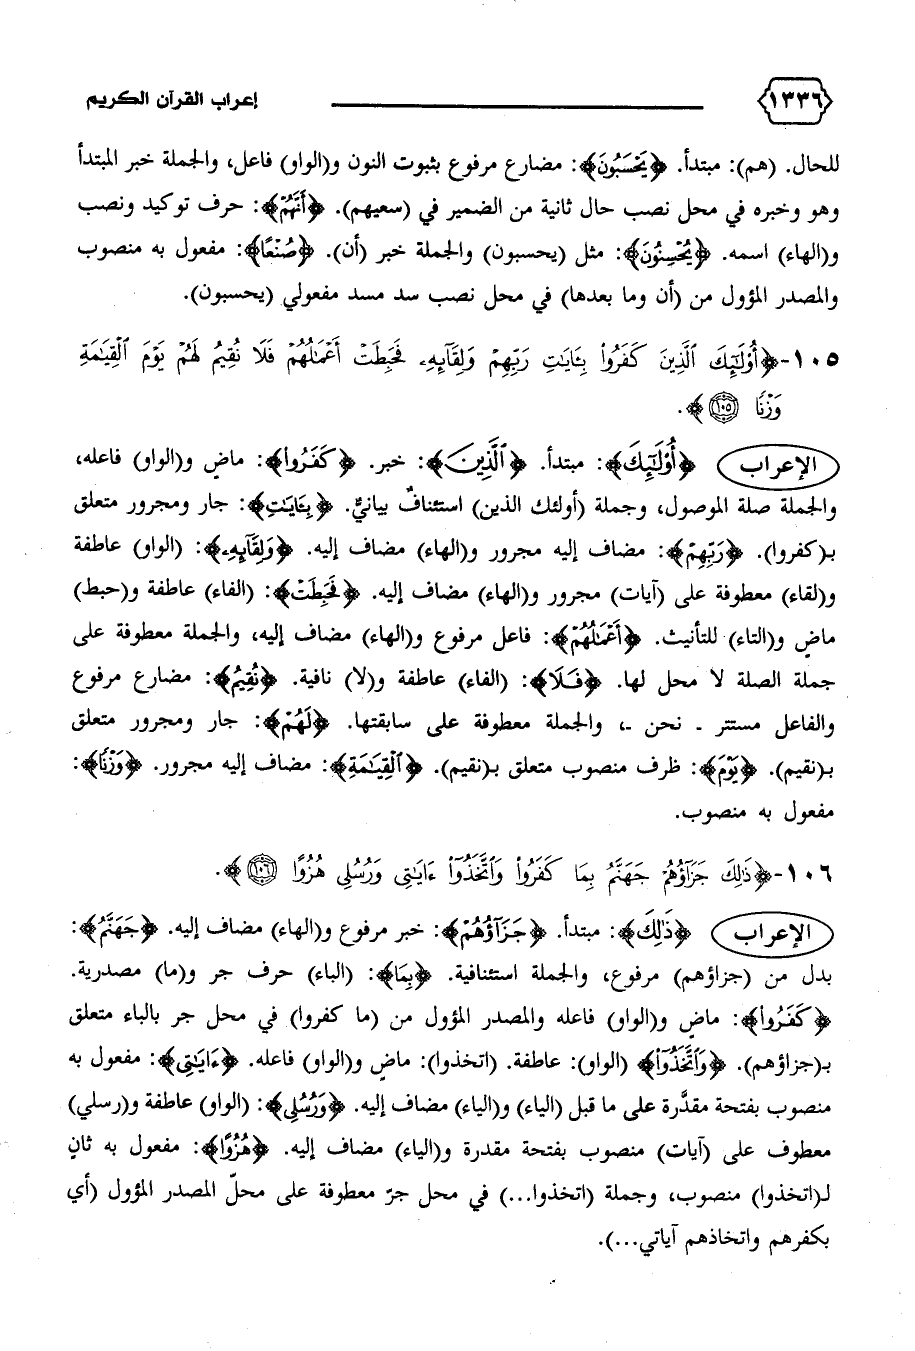 ١٣٣٦ إعراب القرآن الكريم
للحال. (هم): مبتدأ. ﴿يَحْسَبُونَ﴾: مضارع مرفوع بثبوت النون و(الواو) فاعل، والجملة خبر المبتدأ
وهو وخبره في محل نصب حال ثانية من الضمير في (سعيهم). ﴿أَنَّهُمْ﴾: حرف توكيد ونصب
و(الهاء) اسمه. ﴿يُحْسِنُونَ﴾: مثل (يحسبون) والجملة خبر (أن). ﴿صُنْعًا﴾: مفعول به منصوب
والمصدر المؤول من (أن وما بعدها) في محل نصب سد مسد مفعولي (يحسبون).
١٠٥-﴿أُوْلَٰٓئِكَ ٱلَّذِينَ كَفَرُواْ بِـَٔايَٰتِ رَبِّهِمْ وَلِقَآئِهِۦ فَحَبِطَتْ أَعْمَٰلُهُمْ فَلَا نُقِيمُ لَهُمْ يَوْمَ ٱلْقِيَٰمَةِ
وَزْنًا ١٠٥﴾.
الإعراب ﴿أُوْلَٰٓئِكَ﴾: مبتدأ. ﴿ٱلَّذِينَ﴾: خبر. ﴿كَفَرُواْ﴾: ماضٍ و(الواو) فاعله،
والجملة صلة الموصول، وجملة (أولئك الذين) استئنافٌ بيانيٌّ. ﴿بِـَٔايَٰتِ﴾: جار ومجرور متعلق
بـ(كفروا). ﴿رَبِّهِمْ﴾: مضاف إليه مجرور و(الهاء) مضاف إليه. ﴿وَلِقَآئِهِۦ﴾: (الواو) عاطفة
و(لقاء) معطوفة على (آيات) مجرور و(الهاء) مضاف إليه. ﴿فَحَبِطَتْ﴾: (الفاء) عاطفة و(حبط)
ماضٍ و(التاء) للتأنيث. ﴿أَعْمَٰلُهُمْ﴾: فاعل مرفوع و(الهاء) مضاف إليه، والجملة معطوفة على
جملة الصلة لا محل لها. ﴿فَلَا﴾: (الفاء) عاطفة و(لا) نافية. ﴿نُقِيمُ﴾: مضارع مرفوع
والفاعل مستتر ـ نحن ـ، والجملة معطوفة على سابقتها. ﴿لَهُمْ﴾: جار ومجرور متعلق
بـ(نقيم). ﴿يَوْمَ﴾: ظرف منصوب متعلق بـ(نقيم). ﴿ٱلْقِيَٰمَةِ﴾: مضاف إليه مجرور. ﴿وَزْنًا﴾:
مفعول به منصوب.
١٠٦-﴿ذَٰلِكَ جَزَآؤُهُمْ جَهَنَّمُ بِمَا كَفَرُواْ وَٱتَّخَذُوٓاْ ءَايَٰتِى وَرُسُلِى هُزُوًا ١٠٦﴾.
الإعراب ﴿ذَٰلِكَ﴾: مبتدأ. ﴿جَزَآؤُهُمْ﴾: خبر مرفوع و(الهاء) مضاف إليه. ﴿جَهَنَّمُ﴾:
بدل من (جزاؤهم) مرفوع، والجملة استئنافية. ﴿بِمَا﴾: (الباء) حرف جر و(ما) مصدرية.
﴿كَفَرُواْ﴾: ماضٍ و(الواو) فاعله والمصدر المؤول من (ما كفروا) في محل جر بالباء متعلق
بـ(جزاؤهم). ﴿وَٱتَّخَذُوٓاْ﴾ (الواو): عاطفة. (اتخذوا): ماضٍ و(الواو) فاعله. ﴿ءَايَٰتِى﴾: مفعول به
منصوب بفتحة مقدَّرة على ما قبل (الياء) و(الياء) مضاف إليه. ﴿وَرُسُلِى﴾: (الواو) عاطفة و(رسلي)
معطوف على (آيات) منصوب بفتحة مقدرة و(الياء) مضاف إليه. ﴿هُزُوًا﴾: مفعول به ثانٍ
لـ(اتخذوا) منصوب، وجملة (اتخذوا...) في محل جرّ معطوفة على محلّ المصدر المؤول (أي
بكفرهم واتخاذهم آياتي...).